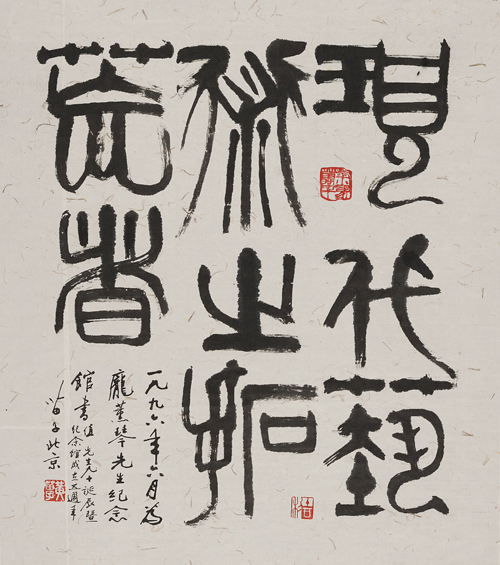 現代藝
術之拓
荒者
一九九六年六月為
龐薰琴先生紀念
館書
值先生九十誕辰暨
紀念館成立五週年
苗子北京